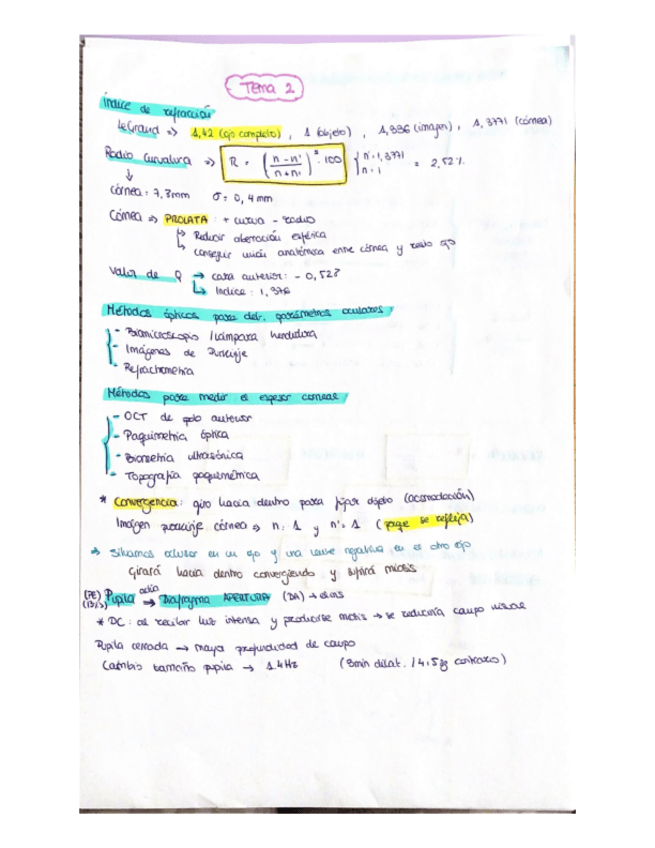 Tema 2
Índice de refracción
LeGrand => 1,42 (ojo completo), 1 (objeto), 1,336 (imagen), 1,3771 (córnea)
Radio Curvatura => R = (n-n'/n+n')² · 100 { n'=1,3771 n=1 = 2,52%
córnea = 7,3mm σ = 0,4mm
Córnea => PROLATA: + curva - radio
↳ Reducir aberración esférica
↳ conseguir unión anatómica entre córnea y resto ojo
Valor de Q → cara anterior: - 0,528
↳ Indice: 1,376
Métodos ópticos para detr. parámetros oculares
- Biomicroscopio / lámpara hendidura
- Imágenes de Purkinje
- Refractometría
Métodos para medir el espesor corneal
- OCT de polo anterior
- Paquimetría óptica
- Biometría ultrasónica
- Topografía paquimétrica
* Convergencia: giro hacia dentro para fijar objeto (acomodación)
Imagen purkinje córnea => n=1 y n'=1 (porque se refleja)
→ Situamos oclusor en un ojo y una lente negativa en el otro ojo
Girará hacia dentro convergiendo y sufrirá miosis
(PE) Pupila → Diafragma APERTURA (DA) →
* DC: al recibir luz intensa y producirse miosis → se reduciría campo visual
Pupila cerrada → mayor profundidad de campo
Cambio tamaño pupila → 1.4Hz (8min dilat. / 4.5sg contrario)